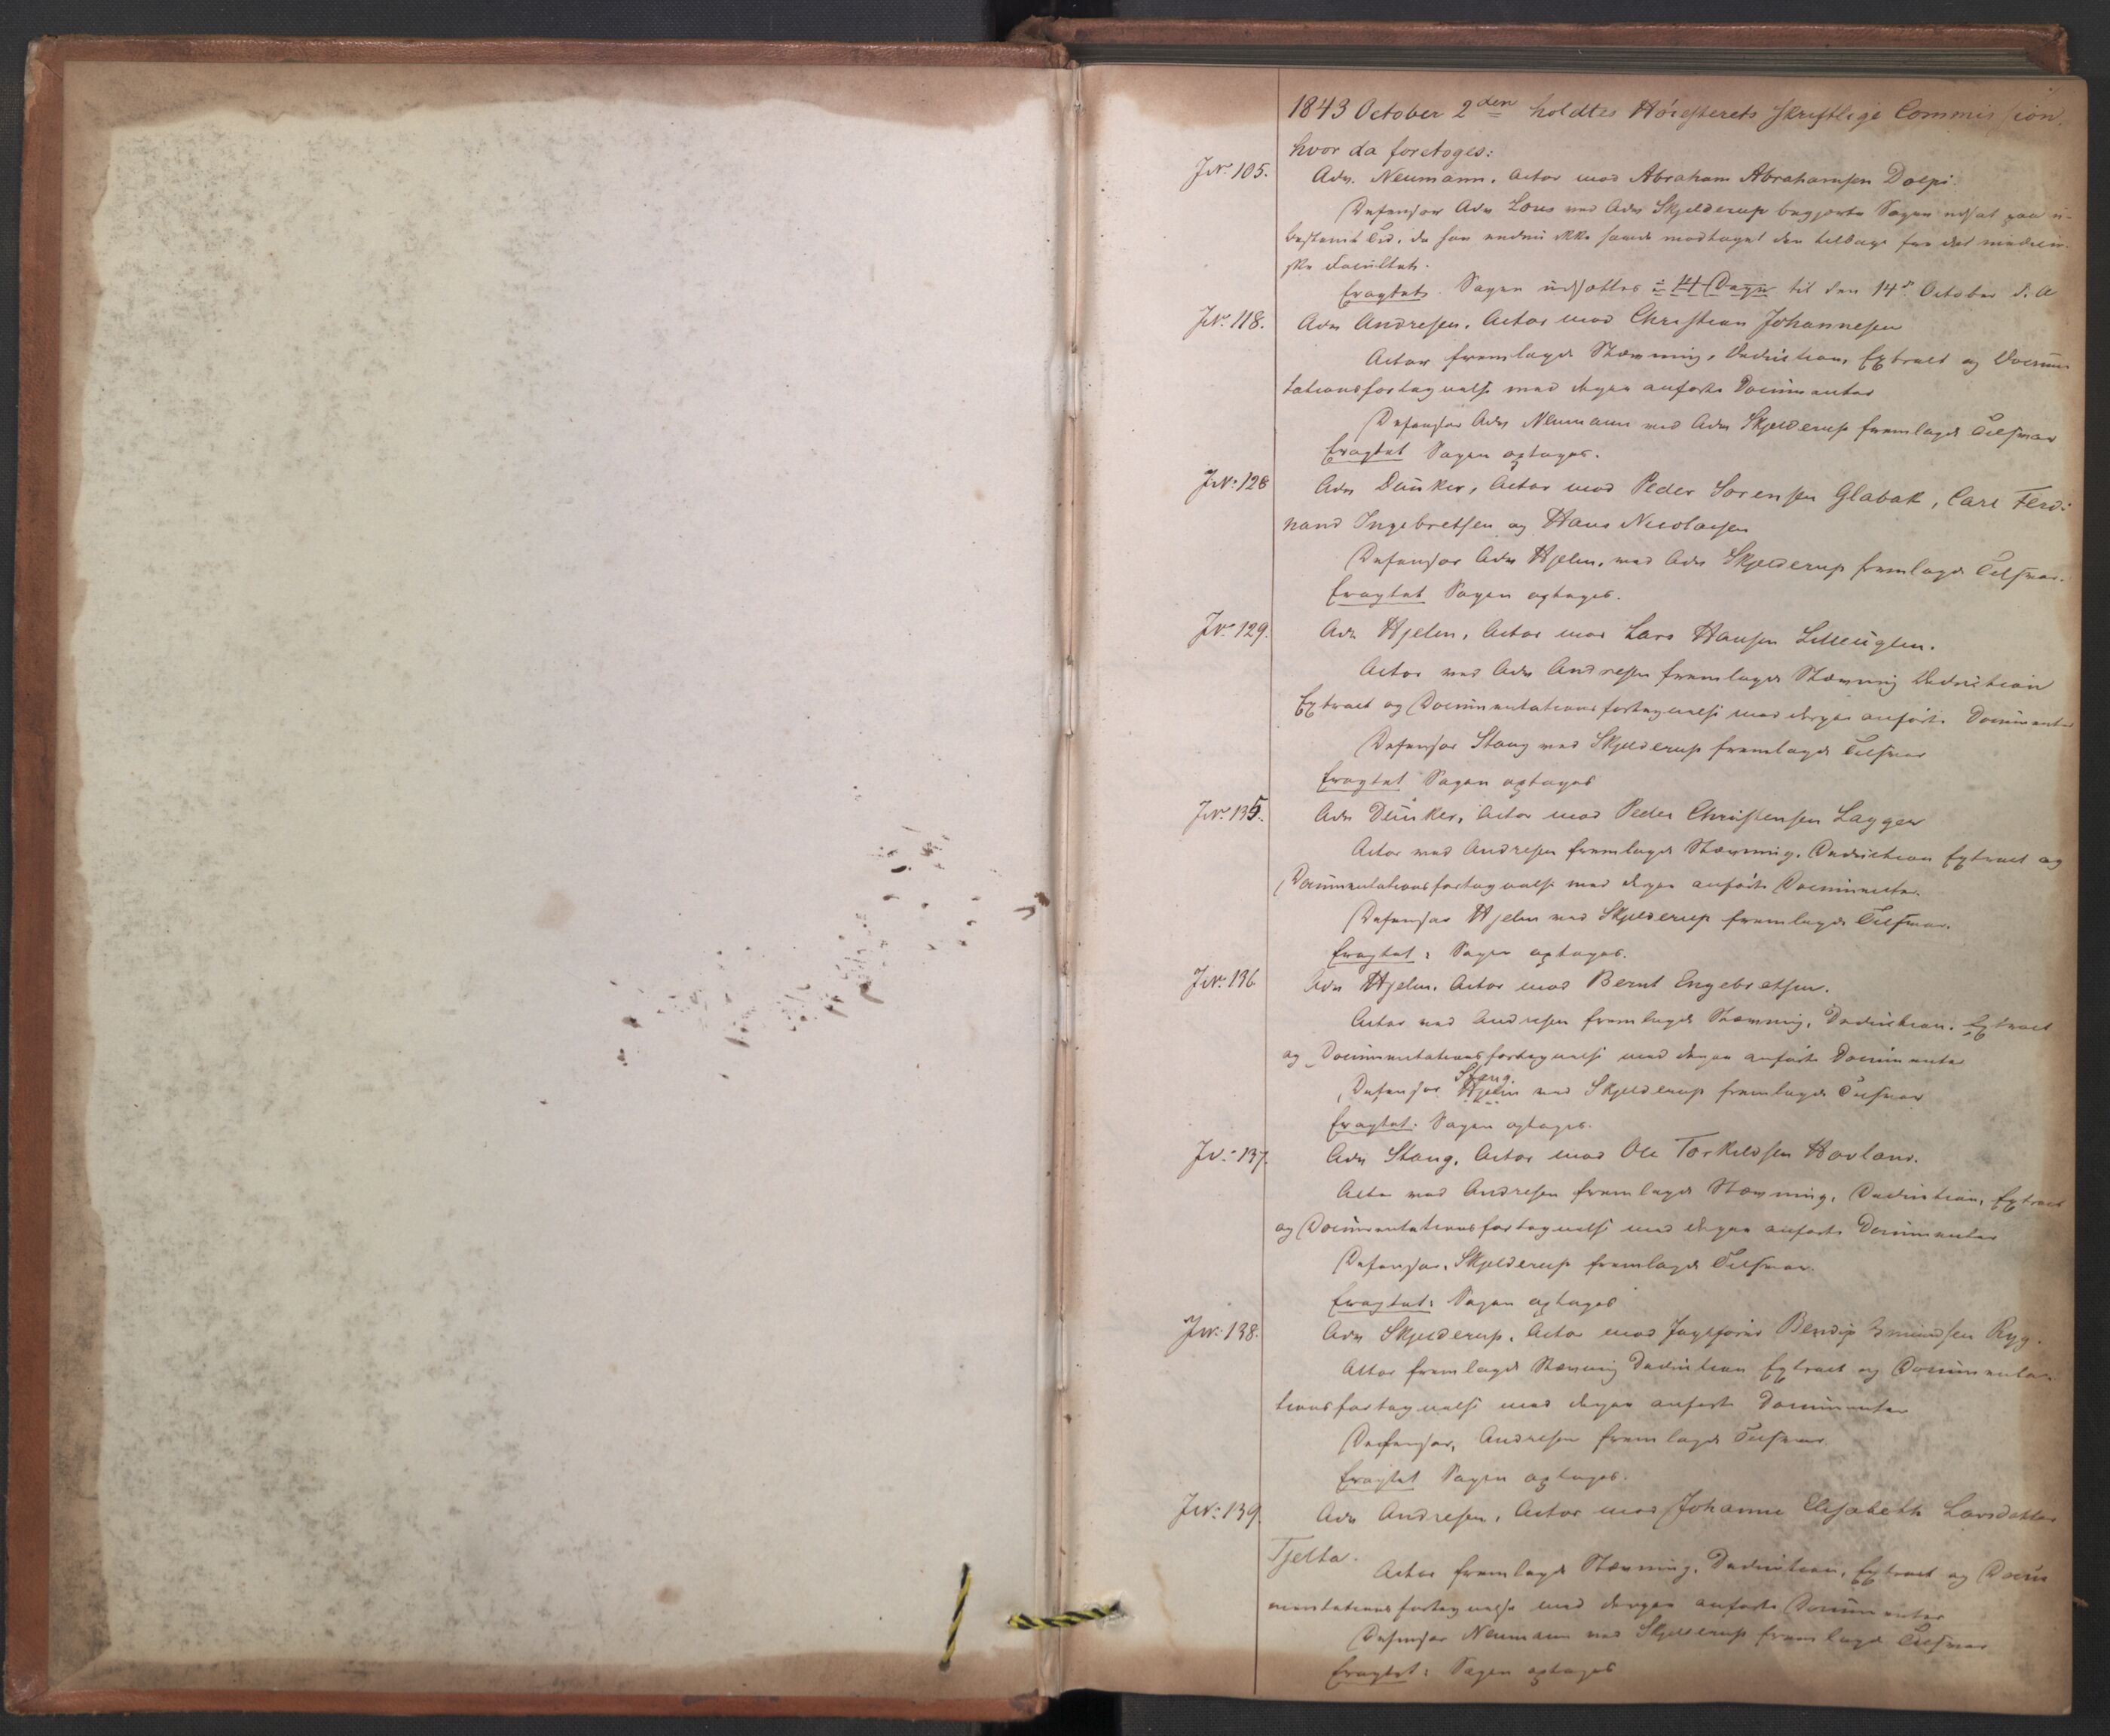 1843 October 2den holdtes Höiesterets skriftlige Commission,
hvor da foretoges:
JNo 105. Adv. Neumann, Actor mod Abraham Abrahamsen Dolpi.
Defensor Adv Lous ved Adv Skjelderup begjerte Sagen udsat paa u-
bestemt Tid, da han endnu ikke havde modtaget den tilbage fra det medicin-
ske Facultet.
Eragtet. Sagen udsættes i 14 Dage til den 14de October d. A
JNo 118. Adv Andresen, Actor mod Christian Johannesen
Actor fremlagde Stævning, Deduction, Extract og Docum
tationsfortegnelse med deri anförte Documenter
Defensor Adv Neumann ved Adv Skjelderup fremlagde Tilsvar
Eragtet Sagen optages.
JNo 128 Adv Dunker, Actor mod Peder Sorensen Glabak, Carl Ferdi-
nand Ingebretsen og Hans Nicolaisen
Defensor Adv Hjelm, ved Adv Skjelderup fremlagde Tilsvar.
Eragtet Sagen optages.
JNo 129. Adv Hjelm, Actor mod Lars Hansen Lilleuglen.
Actor ved Adv Andresen fremlagde Stævning Deduction
Extract og Documentationsfortegnelse med deri anförte Documenter
Defensor Stang ved Skjelderup fremlagde Tilsvar
Eragtet Sagen optages
JNo 135. Adv Dunker, Actor mod Peder Christensen Lagger
Actor ved Andresen fremlagde Stævning, Deduction Extract og
Documentationsfortegnelse med deri anförte Documenter.
Defensor Hjelm ved Skjelderup fremlagde Tilsvar.
Eragtet: Sagen optages.
JNo 136 Adv Hjelm, Actor mod Bernt Engebretsen.
Actor ved Andresen fremlagde Stævning, Deduction, Extract
og Documentationsfortegnelse med deri anförte Documenter
Stang.
Defensor Hjelm ved Skjelderup fremlagde Tilsvar
Eragtet: Sagen optages.
JNo 137. Adv Stang, Actor mod Ole Torkildsen Hovland.
Actor ved Andresen fremlagde Stævning, Deduction, Extract
og Documentationsfortegnelse med deri anförte Documenter
Defensor, Skjelderup fremlagde Tilsvar.
Eragtet: Sagen optages
JNo 138. Adv Skjelderup, Actor mod Bendix Ryg.
Actor fremlagde Stævning Deduction Extract og Documenta-
tionsfortegnelse med deri anförte Documenter
Defensor, Andresen fremlagde Tilsvar
Eragtet Sagen optages.
JNo 139. Adv Andresen, Actor mod Johanne Elisabeth Larsdatter
Tjelta.
Actor fremlagde Stævning, Deduction, Extract og Docu
mentationsfortegnelse med deri anförte Documenter
Defensor Neumann ved Skjelderup fremlagde Tilsvar
Eragtet: Sagen optages